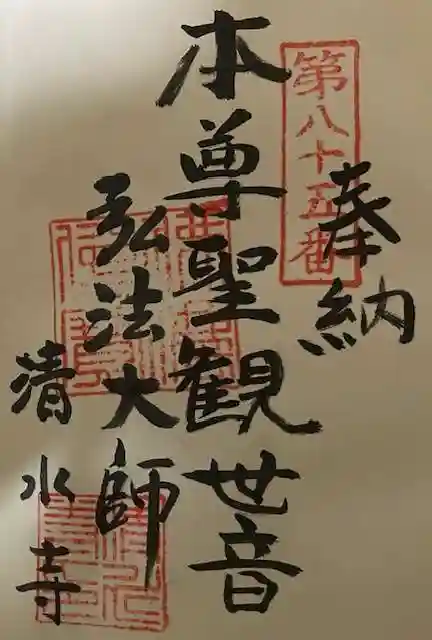 第八十五番
奉納
本尊聖観世音
弘法大師
清水寺